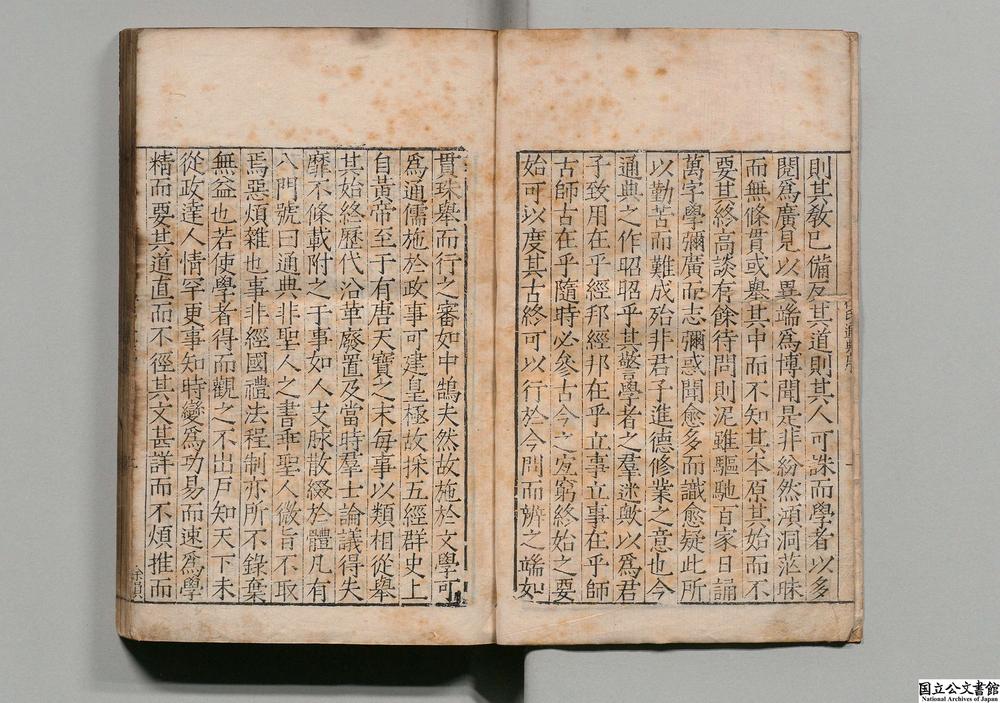 則其敎已備反其道則其人可誅而學者以多
閱爲廣見以異端爲博聞是非紛然澒洞茫昧
而無條貫或舉其中而不知其本原其始而不
要其終高談有餘待問則泥雖驅馳百家日誦
萬字學彌廣而志彌惑聞愈多而識愈疑此所
以勤苦而難成殆非君子進德修業之意也今
通典之作昭昭乎其警學者之羣迷歟以爲君
子致用在乎經邦經邦在乎立事立事在乎師
古師古在乎隨時必參古今之宜窮終始之要
始可以度其古終可以行於今問而辨之端如
貫珠舉而行之審如中鵠夫然故施於文學可
爲通儒施於政事可建皇極故採五經群史上
自黃帝至于有唐天寶之末每事以類相從舉
其始終歷代沿革廢置及當時羣士論議得失
靡不條載附之于事如人支脉散綴於體凡有
八門號曰通典非聖人之書乖聖人微旨不取
焉惡煩雜也事非經國禮法程制亦所不錄棄
無益也若使學者得而觀之不出戶知天下未
從政達人情罕更事知時變爲功易而速爲學
精而要其道直而不徑其文甚詳而不煩推而
国立公文書館
National Archives of Japan